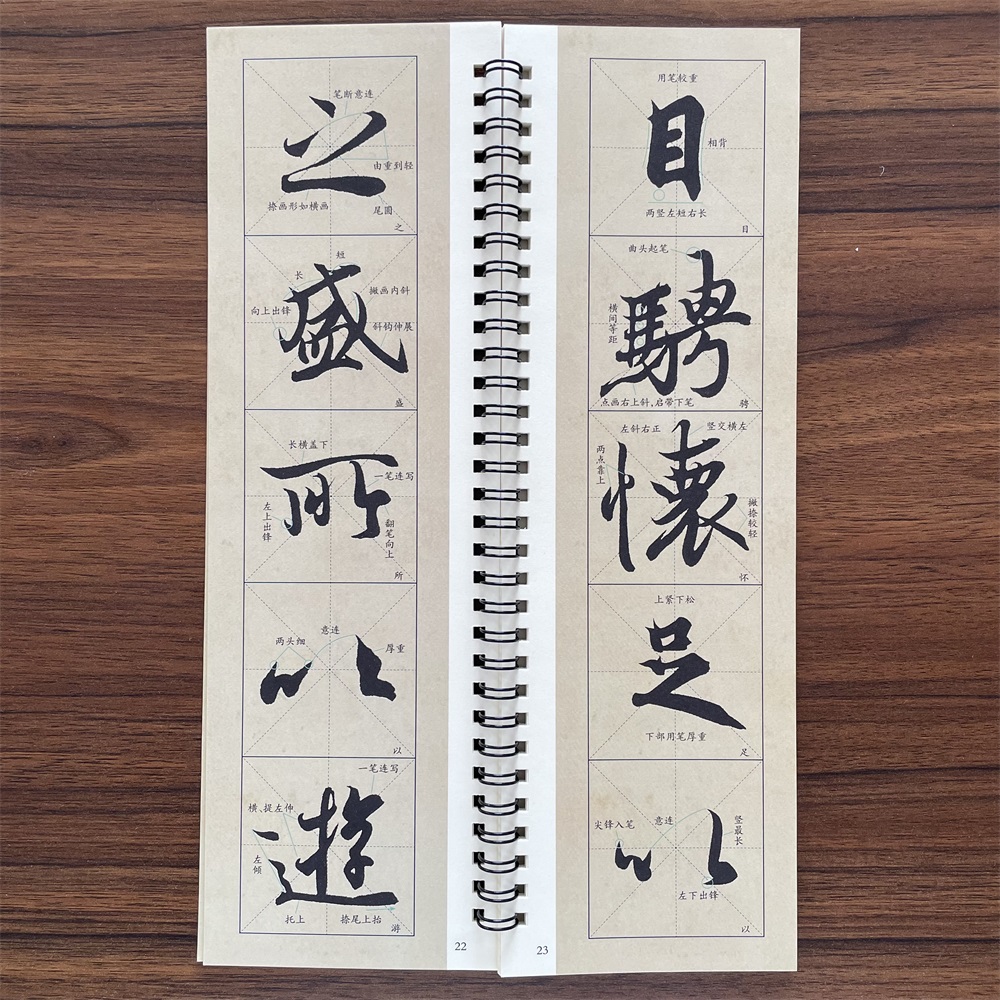 之
笔断意连
由重到轻
捺画形如横画
尾圆
之
盛
短
长
撇画内斜
向上出锋
斜钩伸展
盛
所
长横盖下
一笔连写
左上出锋
翻笔向上
所
以
意连
两头细
厚重
以
遊
一笔连写
横、提左伸
左倾
托上
捺尾上抬
游
22
目
用笔较重
相背
两竖左短右长
目
騁
曲头起笔
横间等距
点画右上斜,启带下笔
骋
懷
左斜右正
竖交横左
两点靠上
撇捺较轻
怀
足
上紧下松
下部用笔厚重
足
以
尖锋入笔
意连
竖最长
左下出锋
以
23